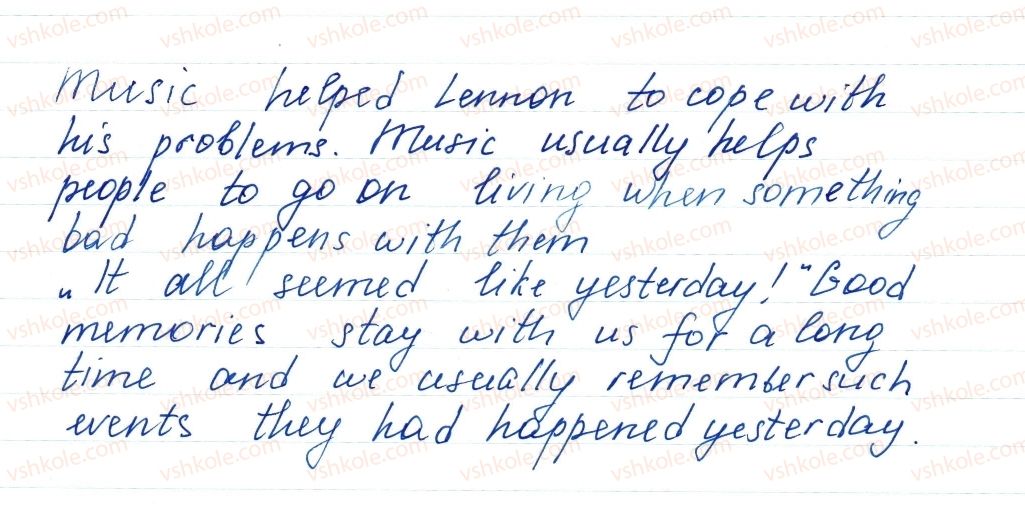 Music helped Lennon to cope with
his problems. Music usually helps
people to go on living when something
bad happens with them
„It all seemed like yesterday!" Good
memories stay with us for a long
time and we usually remember such
events they had happened yesterday.